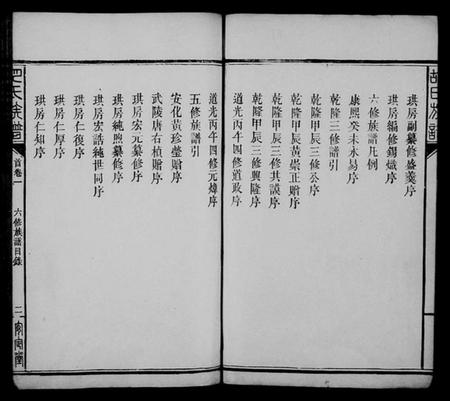 珙房副纂修盛羙序
珙房編修錫熾序
六修族譜凡例
康熙癸未永易序
乾隆三修譜引
乾隆甲辰三修公序
乾隆甲辰黄崇正贈序
乾隆甲辰三修其謨序
乾隆甲辰三修興隆序
道光丙午四修道政序
道光丙午四修元煒序
五修族譜引
安化黄珍瑩贈序
武陵唐右楨贈序
珙房宏元纂修序
珙房純煦纂修序
珙房宏誥純世同序
珙房仁復序
珙房仁厚序
珙房仁知序
氏族譜
首卷一
六修族譜目錄
二